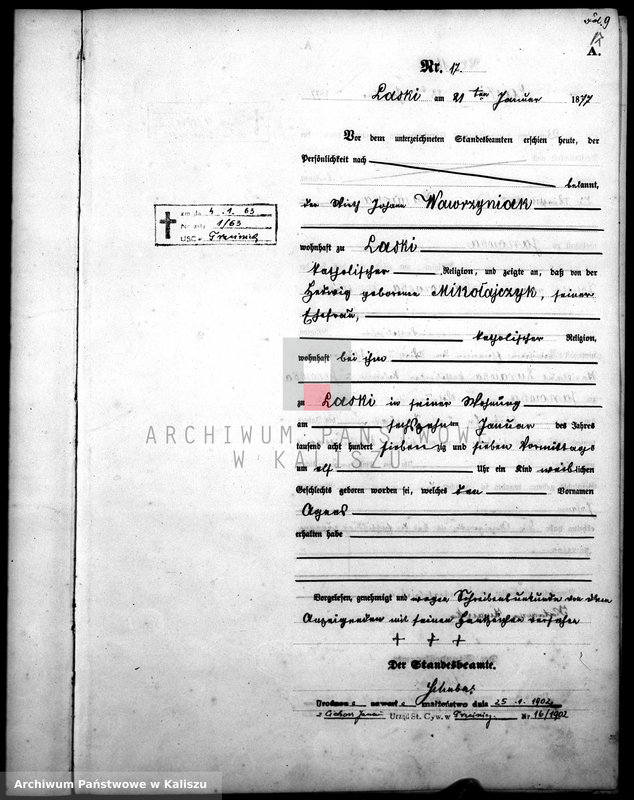 9
17
A.
Nr. 17.
Laski am 21 ten Januar 1877
Vor dem unterzeichneten Standesbeamten erschien heute, der
Persönlichkeit nach
bekannt,
der Wirth Johann Wawrzyniak
wohnhaft zu Laski
katholischer Religion, und zeigte an, daß von der
Hedwig geborenen Mikołajczyk, seiner
Ehefrau,
katholischer Religion,
wohnhaft bei ihm
zu Laski in seiner Wohnung
am sechszehnten Januar des Jahres
tausend acht hundert siebenzig und sieben Vormittags
um elf Uhr ein Kind weiblichen
Geschlechts geboren worden sei, welches den Vornamen
Agnes
erhalten habe
Vorgelesen, genehmigt und wegen Schreibensunkunde von dem
Anzeigenden mit seinem Handzeichen versehen
+ + +
Der Standesbeamte.
małżeństwo dnia 25.1.1902
Urząd St. Cyw. w Trzcinicy. Nr 16/1902
zm. dn. 4.1.63
Nr aktu 1/63
USC Trzcinica
ARCHIWUM PAŃSTWOWE
W KALISZU
Archiwum Państwowe w Kaliszu